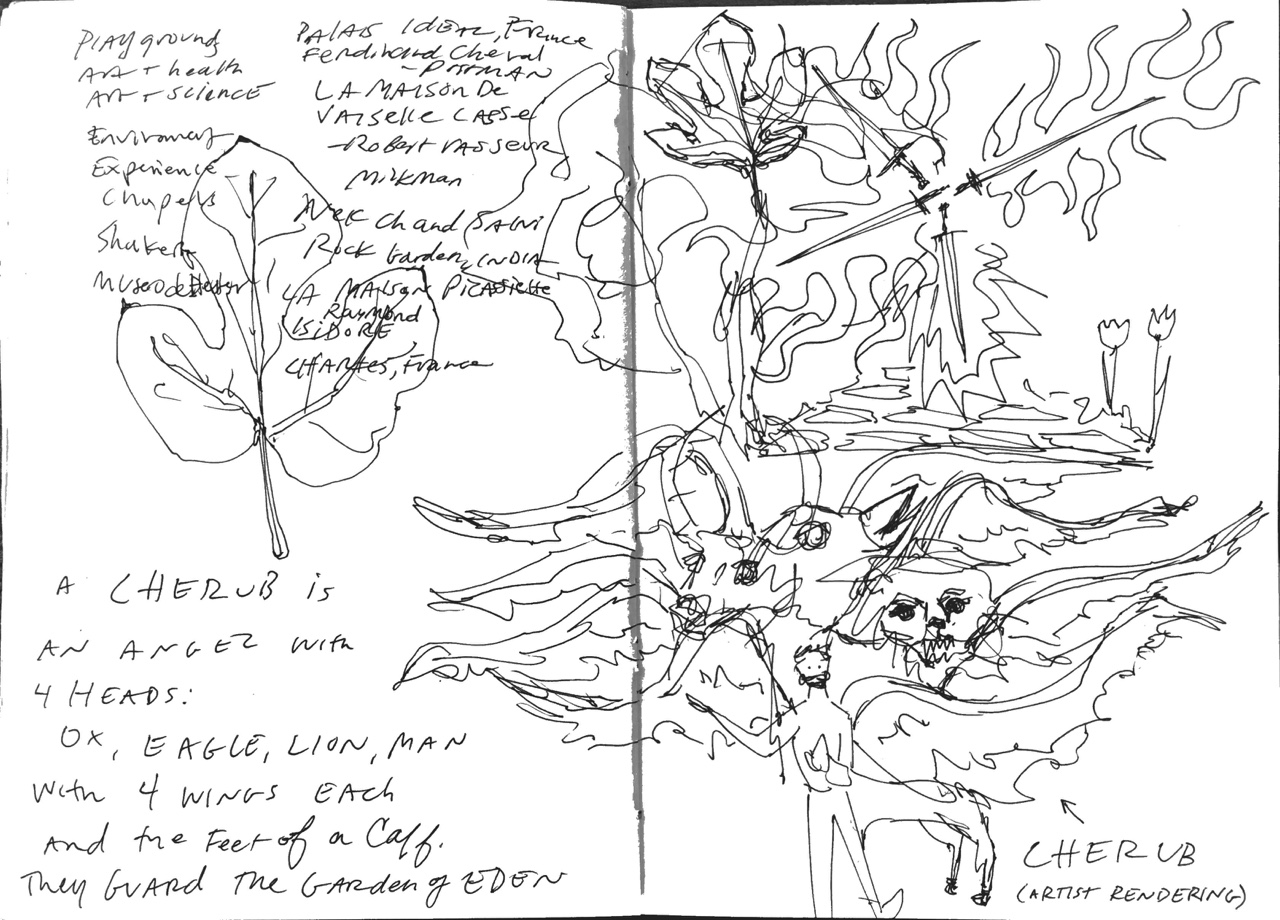 Playground
Art + health
Art + science
Enviroment
Experience
Chapels
Shakers
Museo de
PALAIS IDEAL, France
Ferdinand Cheval
- POSTMAN
LA MAISON De
VAISelle CASSe
- Robert VASSEUR
Milkman
Nek Chand SAiNi
Rock Garden, INDIA
LA MAISON PICASSiette
Raymond
ISiDORE
CHARTES, France
A CHERUB is
AN ANGEL with
4 HEADS:
OX, EAGLE, LION, MAN
with 4 WINGS EAch
And the Feet of a Calf.
They GUARD The GARDEN of EDEN
CHERUB
(ARTIST RENDERING)